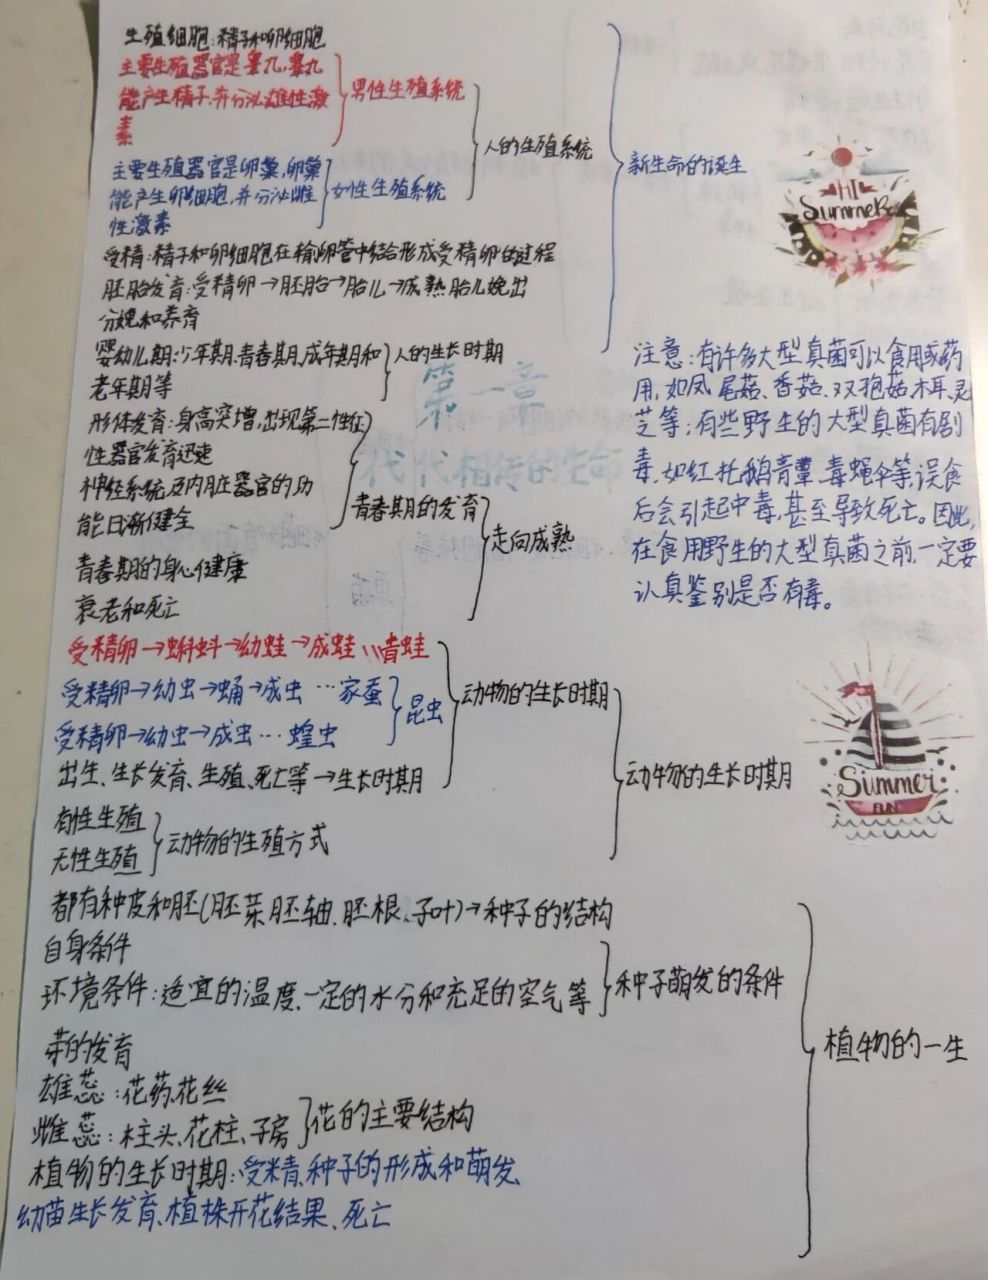 生殖细胞:精子和卵细胞
主要生殖器官是睾丸,睾丸
能产生精子,并分泌雄性激
素
男性生殖系统
主要生殖器官是卵巢,卵巢
能产生卵细胞,并分泌雌
性激素
女性生殖系统
人的生殖系统
受精:精子和卵细胞在输卵管中结合形成受精卵的过程
胚胎发育:受精卵→胚胎→胎儿→成熟胎儿娩出
分娩和养育
新生命的诞生
HI
Summer
婴幼儿期,少年期、青春期,成年期和
老年期等
人的生长时期
第一章
代代相传的生命
形体发育:身高突增,出现第二性征
性器官发育迅速
神经系统及内脏器官的功
能日渐健全
青春期的发育
青春期的身心健康
衰老和死亡
走向成熟
注意:有许多大型真菌可以食用或药
用,如凤尾菇、香菇、双孢菇、木耳、灵
芝等;有些野生的大型真菌有剧
毒,如红托鹅膏蕈、毒蝇伞等,误食
后会引起中毒,甚至导致死亡。因此,
在食用野生的大型真菌之前,一定要
认真鉴别是否有毒。
受精卵→蝌蚪→幼蛙→成蛙 青蛙
受精卵→幼虫→蛹→成虫…家蚕
受精卵→幼虫→成虫…蝗虫
昆虫
出生、生长发育、生殖、死亡等→生长时期
动物的生长时期
有性生殖
无性生殖
动物的生殖方式
动物的生长时期
Summer
FUN
都有种皮和胚(胚芽、胚轴、胚根、子叶)→种子的结构
自身条件
环境条件:适宜的温度、一定的水分和充足的空气等
种子萌发的条件
芽的发育
雄蕊:花药、花丝
雌蕊:柱头、花柱、子房
花的主要结构
植物的生长时期:受精、种子的形成和萌发、
幼苗生长发育、植株开花结果、死亡
植物的一生